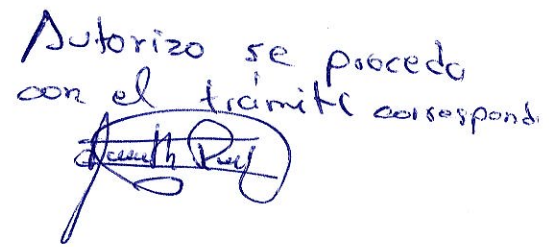 Autorizo se proceda
con el trámite correspond